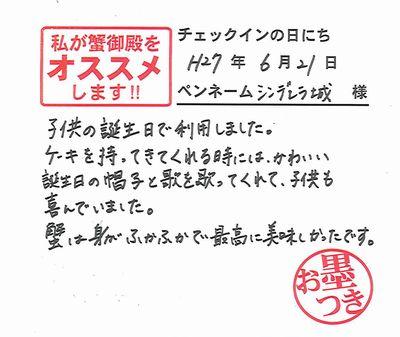 私が蟹御殿を
オススメ
します!!
チェックインの日にち
H27 年 6 月 21 日
ペンネーム シンデレラ城 様
子供の誕生日で利用しました。
ケーキを持ってきてくれる時には、かわいい
誕生日の帽子と歌を歌ってくれて、子供も
喜んでいました。
蟹は身がふかふかで最高に美味しかったです。
お墨つき